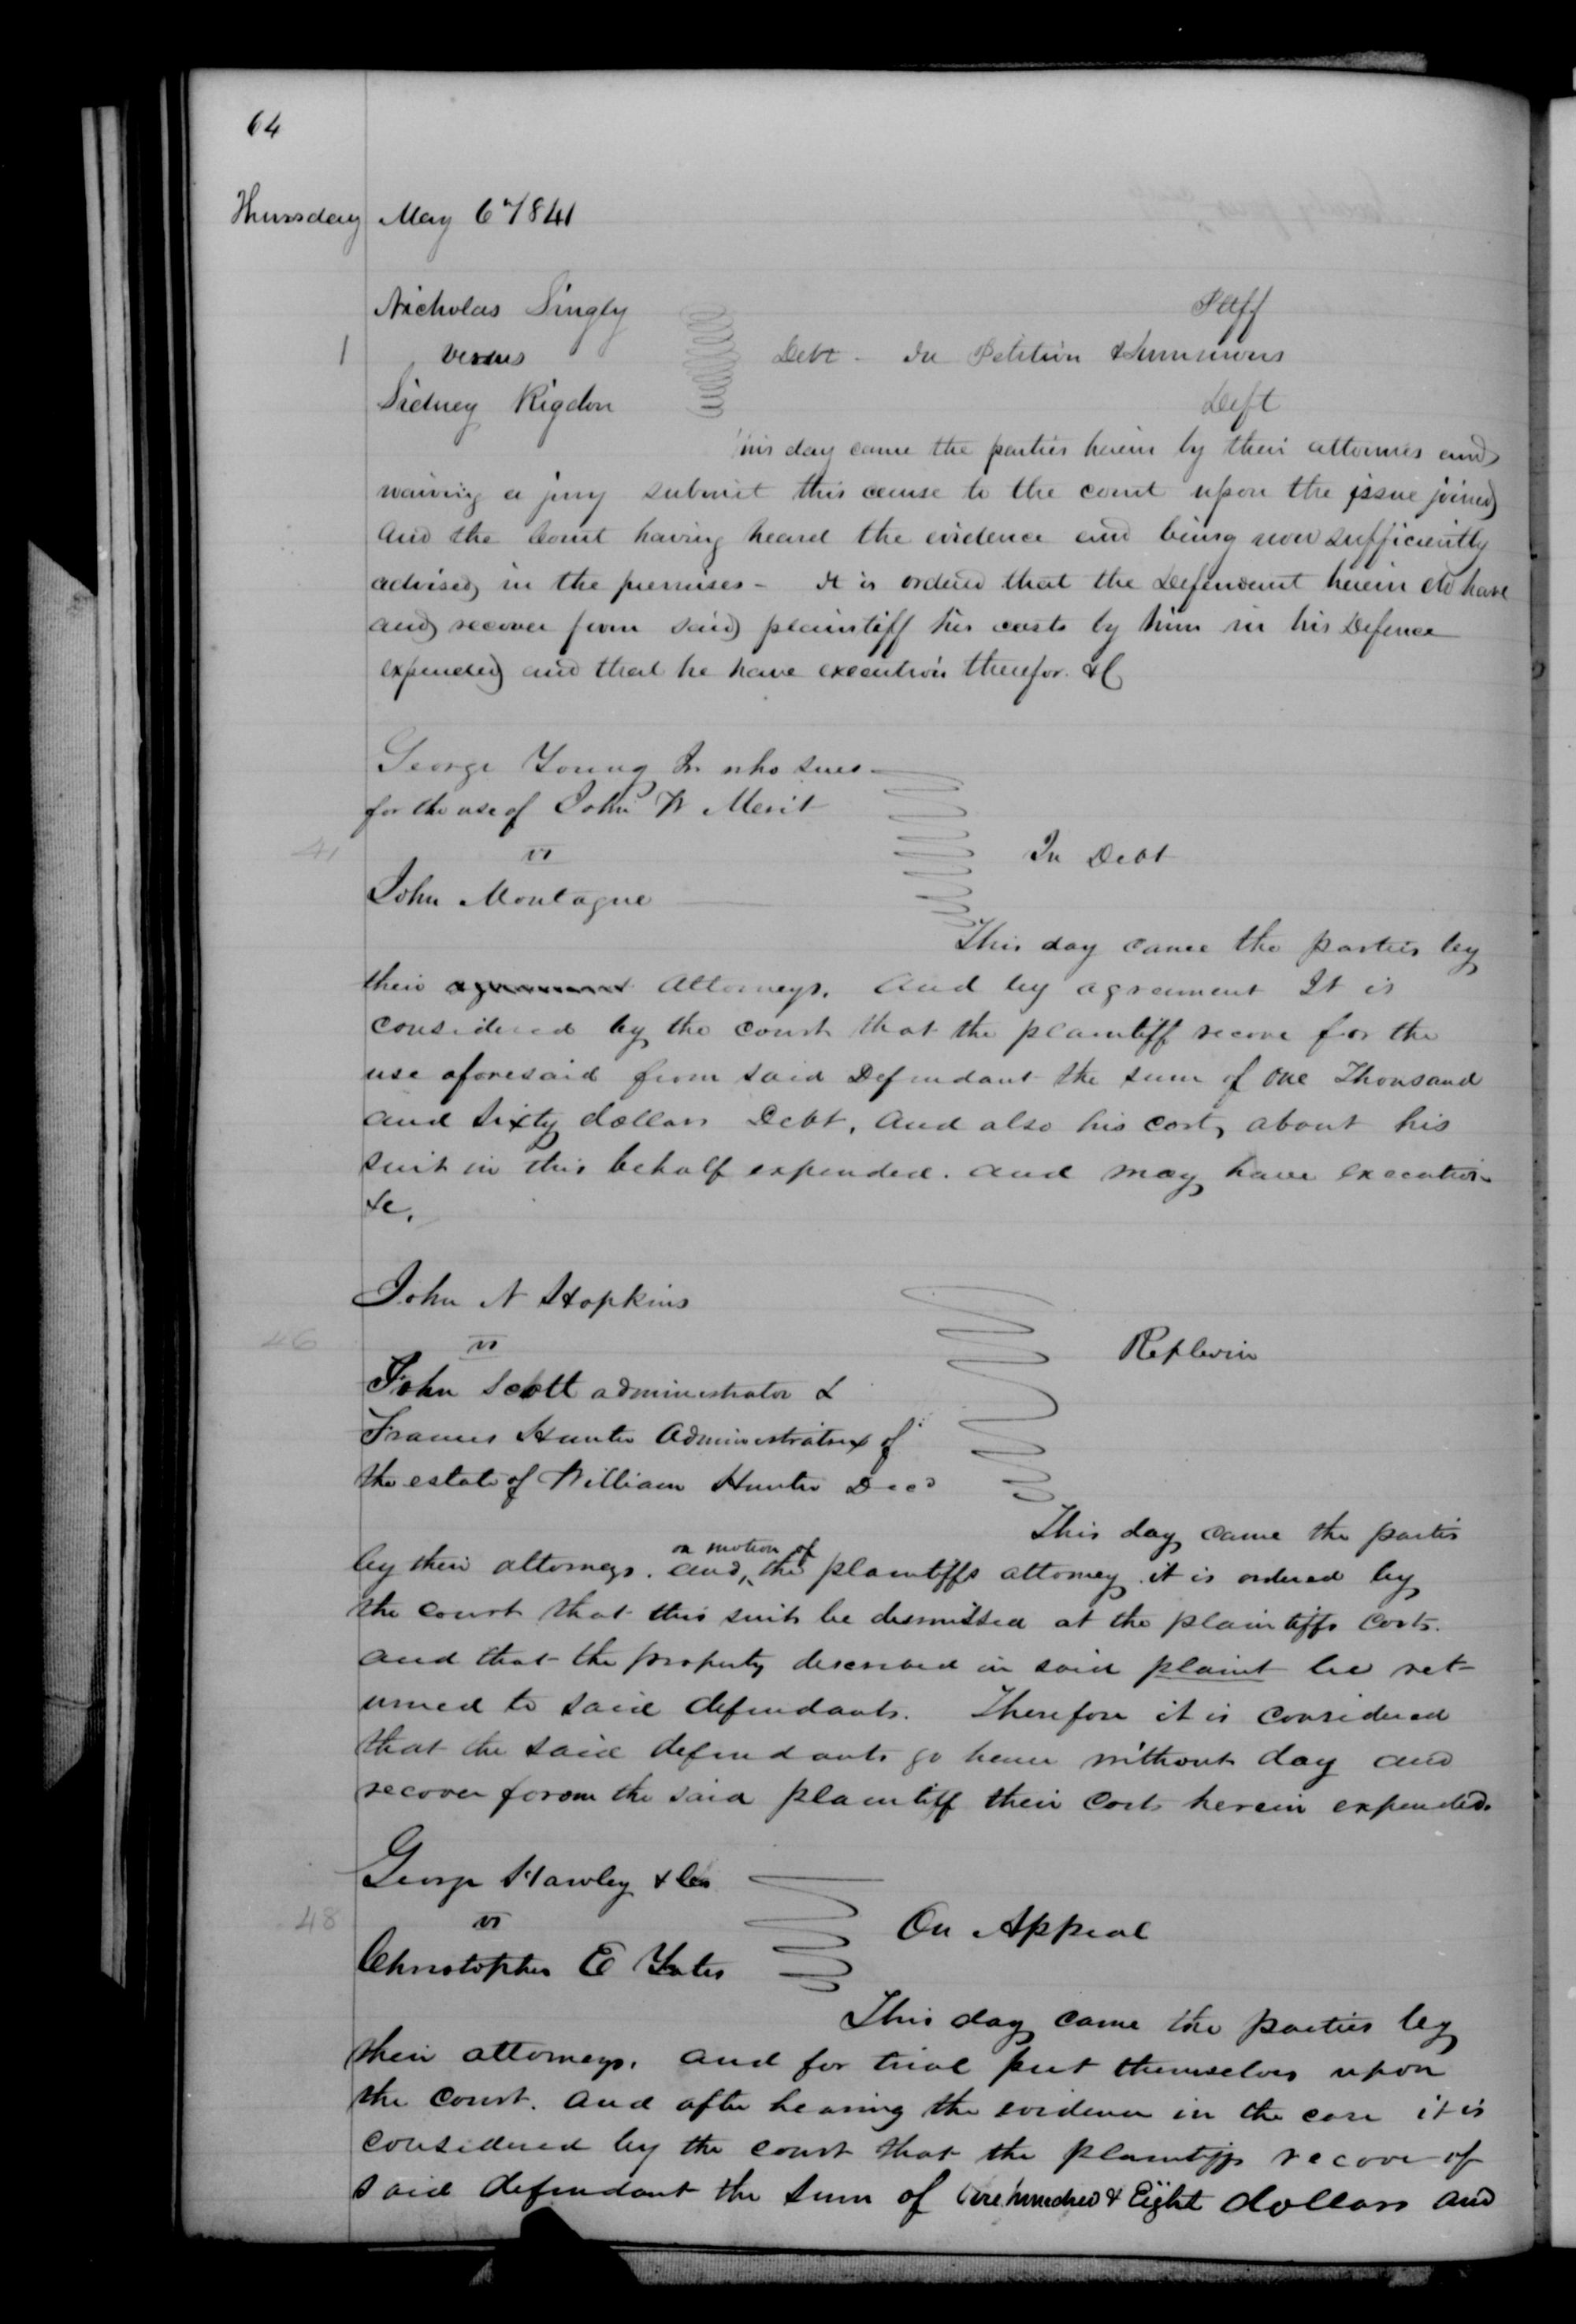 64
Thursday May 6th 1841
Nicholas Singly Pltff
1 versus Debt - In Petition & Summons
Sidney Rigdon Deft
This day came the parties herein by their attornies and
waiving a jury submit this cause to the court upon the issue joined
and the Court having heard the evidence and being now sufficiently
advised in the premises - It is ordered that the Defendant herein do have
and recover from said plaintiff his costs by him in his Defence
expended and that he have execution therefor. &C
George Young Jr who sues
for the use of John W Merit
41 vs In Debt
John Montague
This day came the parties by
their agreement Attorneys. and by agreement It is
considered by the court that the plaintiff recover for the
use aforesaid from said Defendant the sum of One Thousand
and Sixty dollars Debt, and also his costs about his
suit in this behalf expended. and may have execution
&c.
John N Hopkins
46 vs Replevin
John Scott administrator &
Frances Hunter Administratrix of
the estate of William Hunter Decd
This day came the parties
by their attorneys. and, on motion of the plaintiffs attorney it is ordered by
the court that this suit be dismissed at the plaintiffs costs.
and that the property described in said plaint be ret-
urned to said defendants. Therefore it is considered
that the said defendants go hence without day and
recover forom the said plaintiff their costs herein expended.
George Hawley & Co
48 vs On Appeal
Christopher E Yates
This day came the parties by
their attorneys. and for trial put themselves upon
the court. and after hearing the evidence in the case it is
considered by the court that the plaintiffs recover of
said defendant the sum of One hundred & Eight dollars and